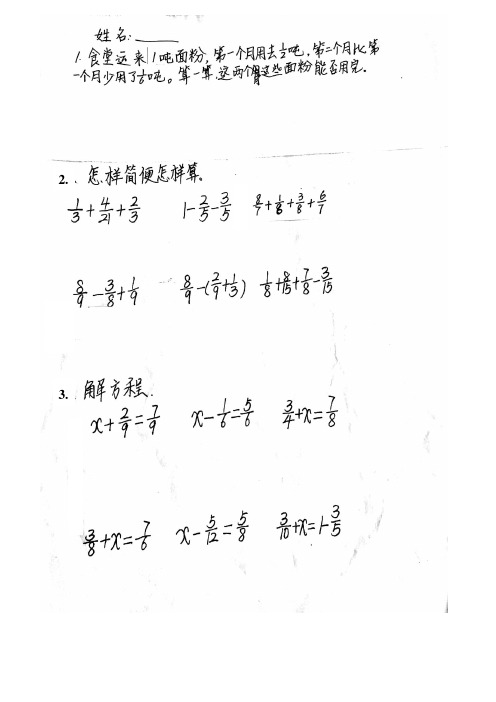 姓名:_____
1. 食堂运来1吨面粉,第一个月用去1/2吨,第二个月比第
一个月少用了1/6吨。算一算,这两个月这些面粉能否用完.
2. . 怎样简便怎样算。
1/3+4/21+2/3 1-2/5-3/5 8/7+1/8+3/8+6/7
8/9-3/8+1/9 8/9-(2/9+1/3) 1/8+8/15+7/8-3/15
3. 解方程.
x+2/9=7/9 x-1/6=5/6 3/4+x=7/8
3/8+x=7/6 x-5/12=5/8 3/10+x=1-3/5